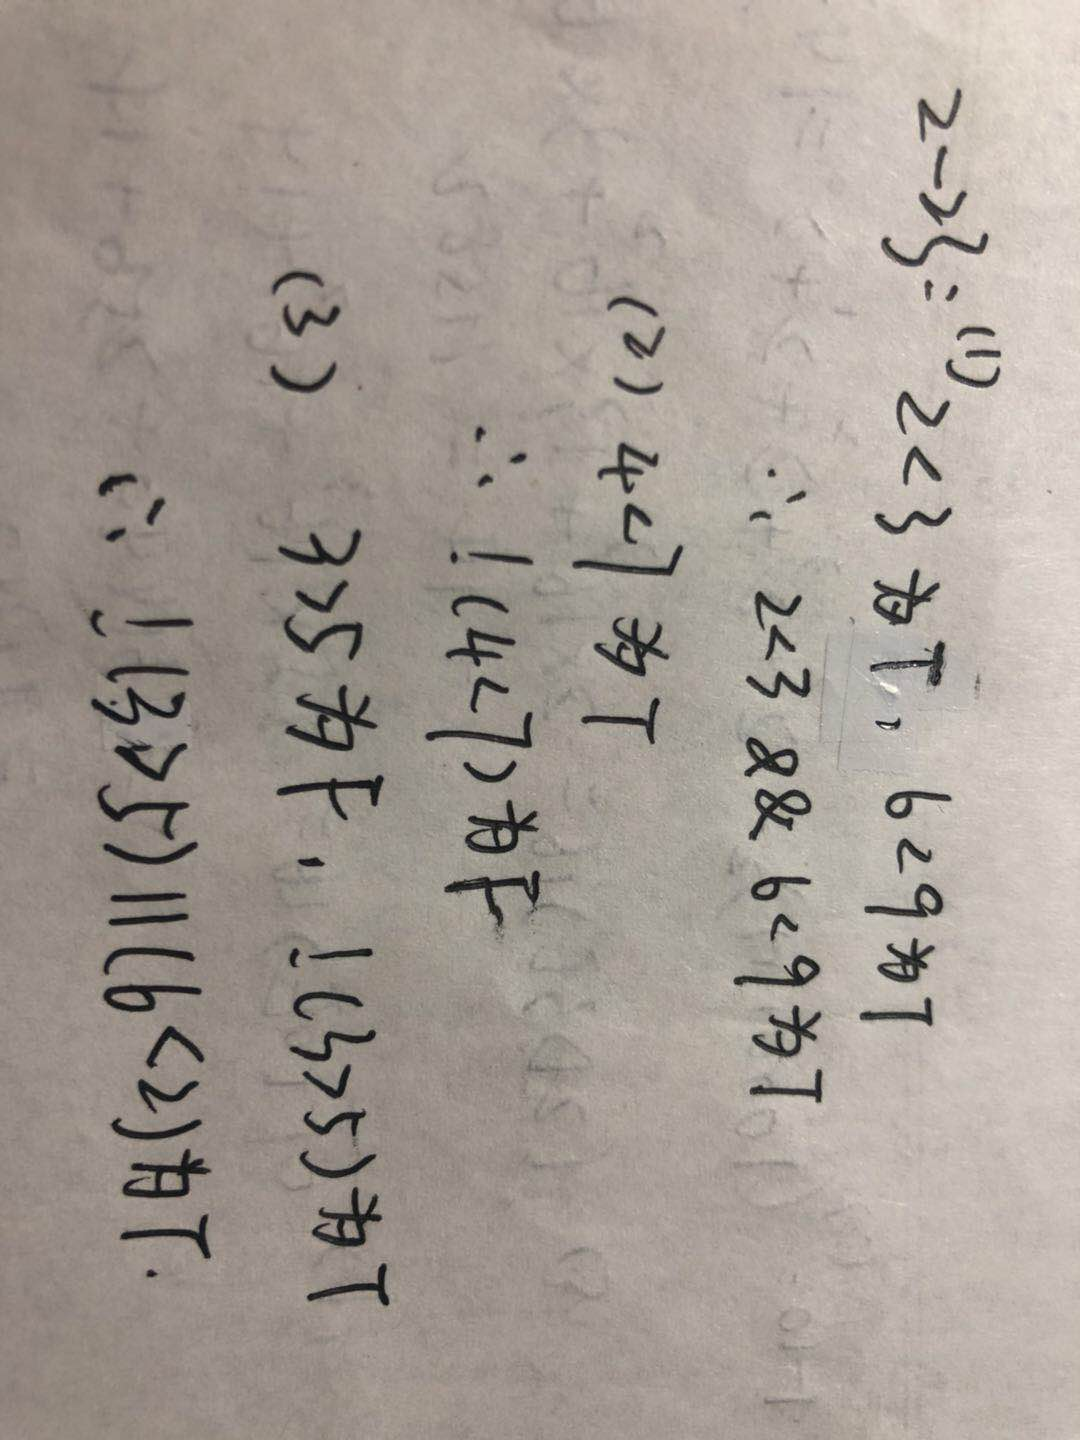 2-23: (1) 2<3 为T, 6<9为T
∴ 2<3 && 6<9为T
(2) 4<7 为T
∴ !(4<7)为F
(3) 3>5 为F, !(3>5)为T
∴ !(3>5)||(6<2)为T.